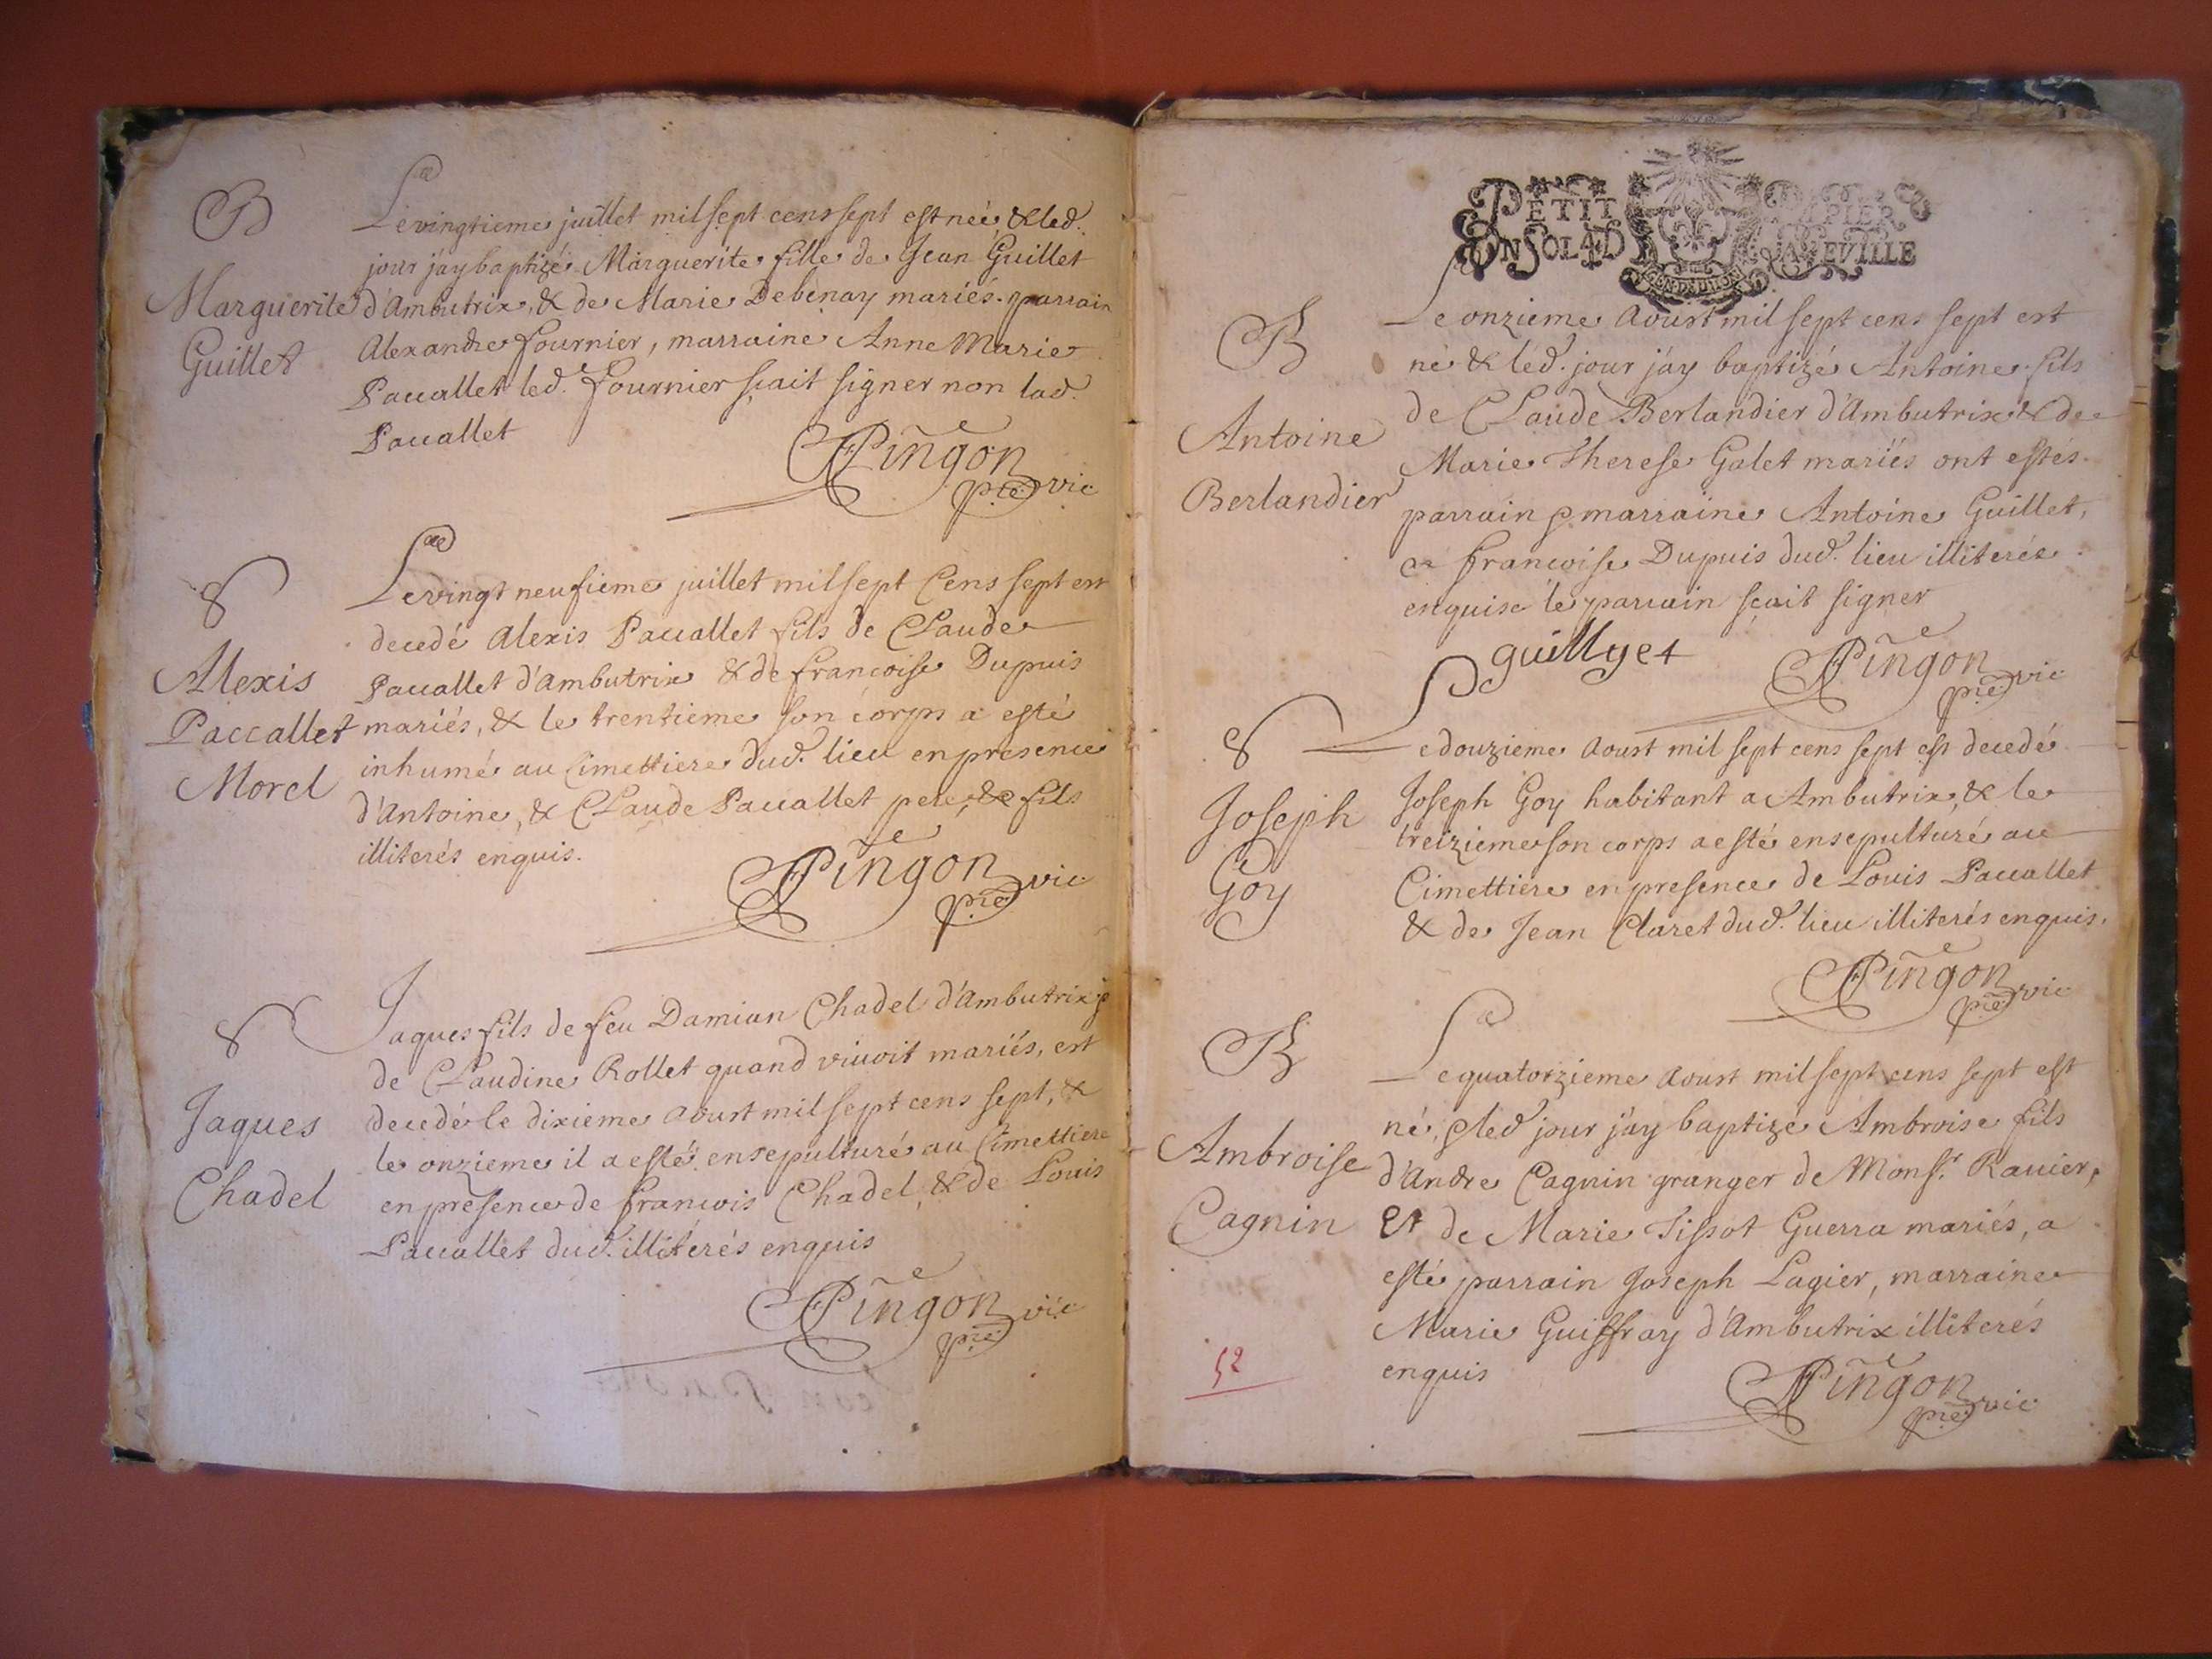 B
Marguerite
Guillet
Le vingtieme juillet mil sept cens sept est neé, & led.
jour j'ay baptizé Marguerite fille de Jean Guillet
d'Ambutrix, & de Marie Debenay mariés. parrain
Alexandre fournier, marraine Anne Marie
Paccallet led. fournier sçait signer non lad.
Paccallet
Pingon
p.re vic
S
Alexis
Paccallet
Morel
Le vingt neufieme juillet mil sept Cens sept est
decedé Alexis Paccallet fils de Claude
Paccallet d'Ambutrix & de francoise Dupuis
mariés, & le trentieme son corps a esté
inhumé au Cimettiere dud. lieu en presence
d'Antoine, & Claude Paccallet pere, & fils
illiterés enquis.
Pingon
p.re vic
S
Jaques
Chadel
Jaques fils de feu Damian Chadel d'Ambutrix &
de Claudine Rollet quand vivoit mariés, est
decedé le dixieme Aoust mil sept cens sept, &
le onzieme il a esté ensepulturé au Cimettiere
en presence de francois Chadel, & de Louis
Paccallet dud. illiterés enquis
Pingon
p.re vic
PETIT PAPIER
EN SOL 4 D LA FEVILLE
GEN DE DIJON
B
Antoine
Berlandier
Le onzieme Aoust mil sept cens sept est
né & led. jour j'ay baptizé Antoine fils
de Claude Berlandier d'Ambutrix & de
Marie Therese Galet mariés ont estés
parrain & marraine Antoine Guillet,
et francoise Dupuis dud. lieu illiterée
enquise le parrain sçait signer
guillyet
Pingon
p.re vic
S
Joseph
Goy
Le douzieme Aoust mil sept cens sept est decedé
Joseph Goy habitant a Ambutrix, & le
treizieme son corps a esté ensepulturé au
Cimettiere en presence de Louis Paccallet
& de Jean Claret dud. lieu illiterés enquis.
Pingon
p.re vic
B
Ambroise
Cagnin
Le quatorzieme Aoust mil sept cens sept est
né, & led jour j'ay baptizé Ambroise fils
d'Andre Cagnin granger de Mons.r Ravier,
Et de Marie Tissot Guerra mariés, a
esté parrain Joseph Lagier, marraine
Marie Guiffray d'Ambutrix illiterés
enquis
Pingon
p.re vic
52